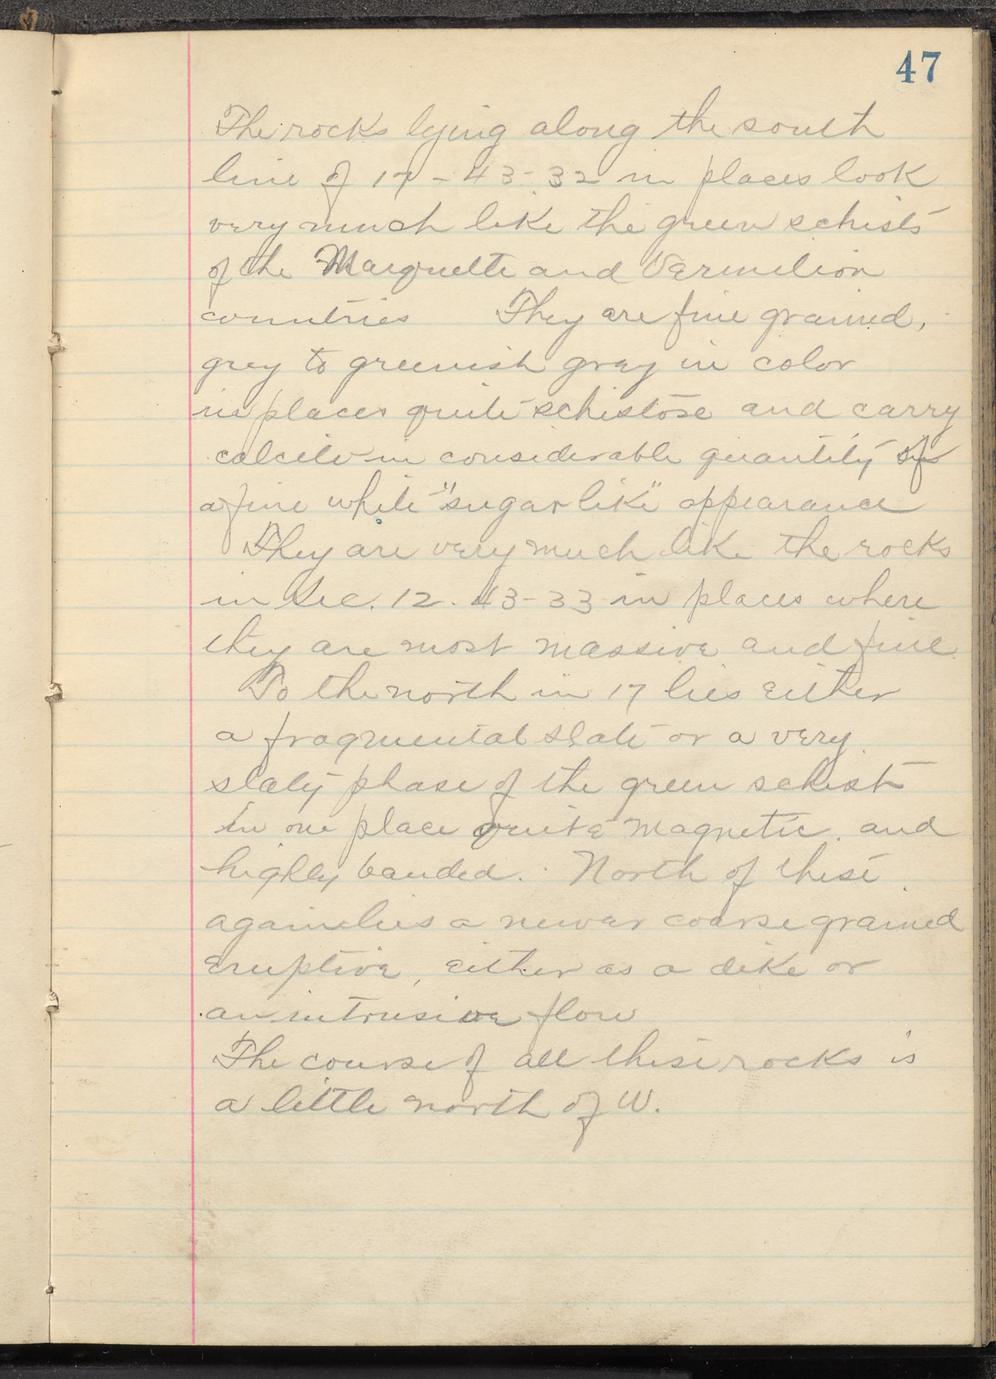 47
The rocks lying along the south
line of 17 - 43 - 32 in places look
very much like the green schists
of the Marquette and Vermilion
countries They are fine grained,
grey to greenish gray in color
in places quite schistose and carry
calcite in considerable quantity of
a fine white "sugar like" appearance
They are very much like the rocks
in Sec. 12. 43-33 in places where
they are most massive and fine.
To the north in 17 lies either
a fragmental slate or a very
slaty phase of the green schist
in one place quite magnetic and
highly banded. North of these
again lies a newer coarse grained
eruptive, either as a dike or
an intrusive flow
The course of all these rocks is
a little north of W.